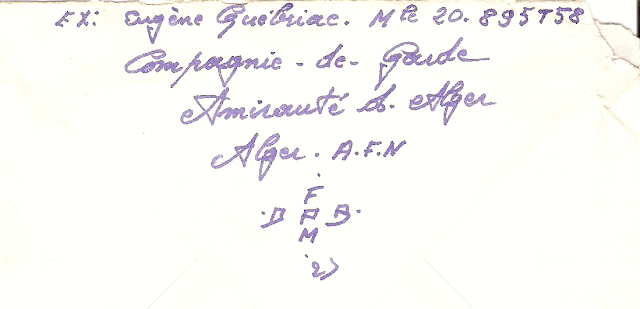 EX: Eugène Québriac. Mle 20.895T58
Compagnie-de-Garde
Amirauté d'Alger
Alger. A.F.N
F
.D A B.
M
2)